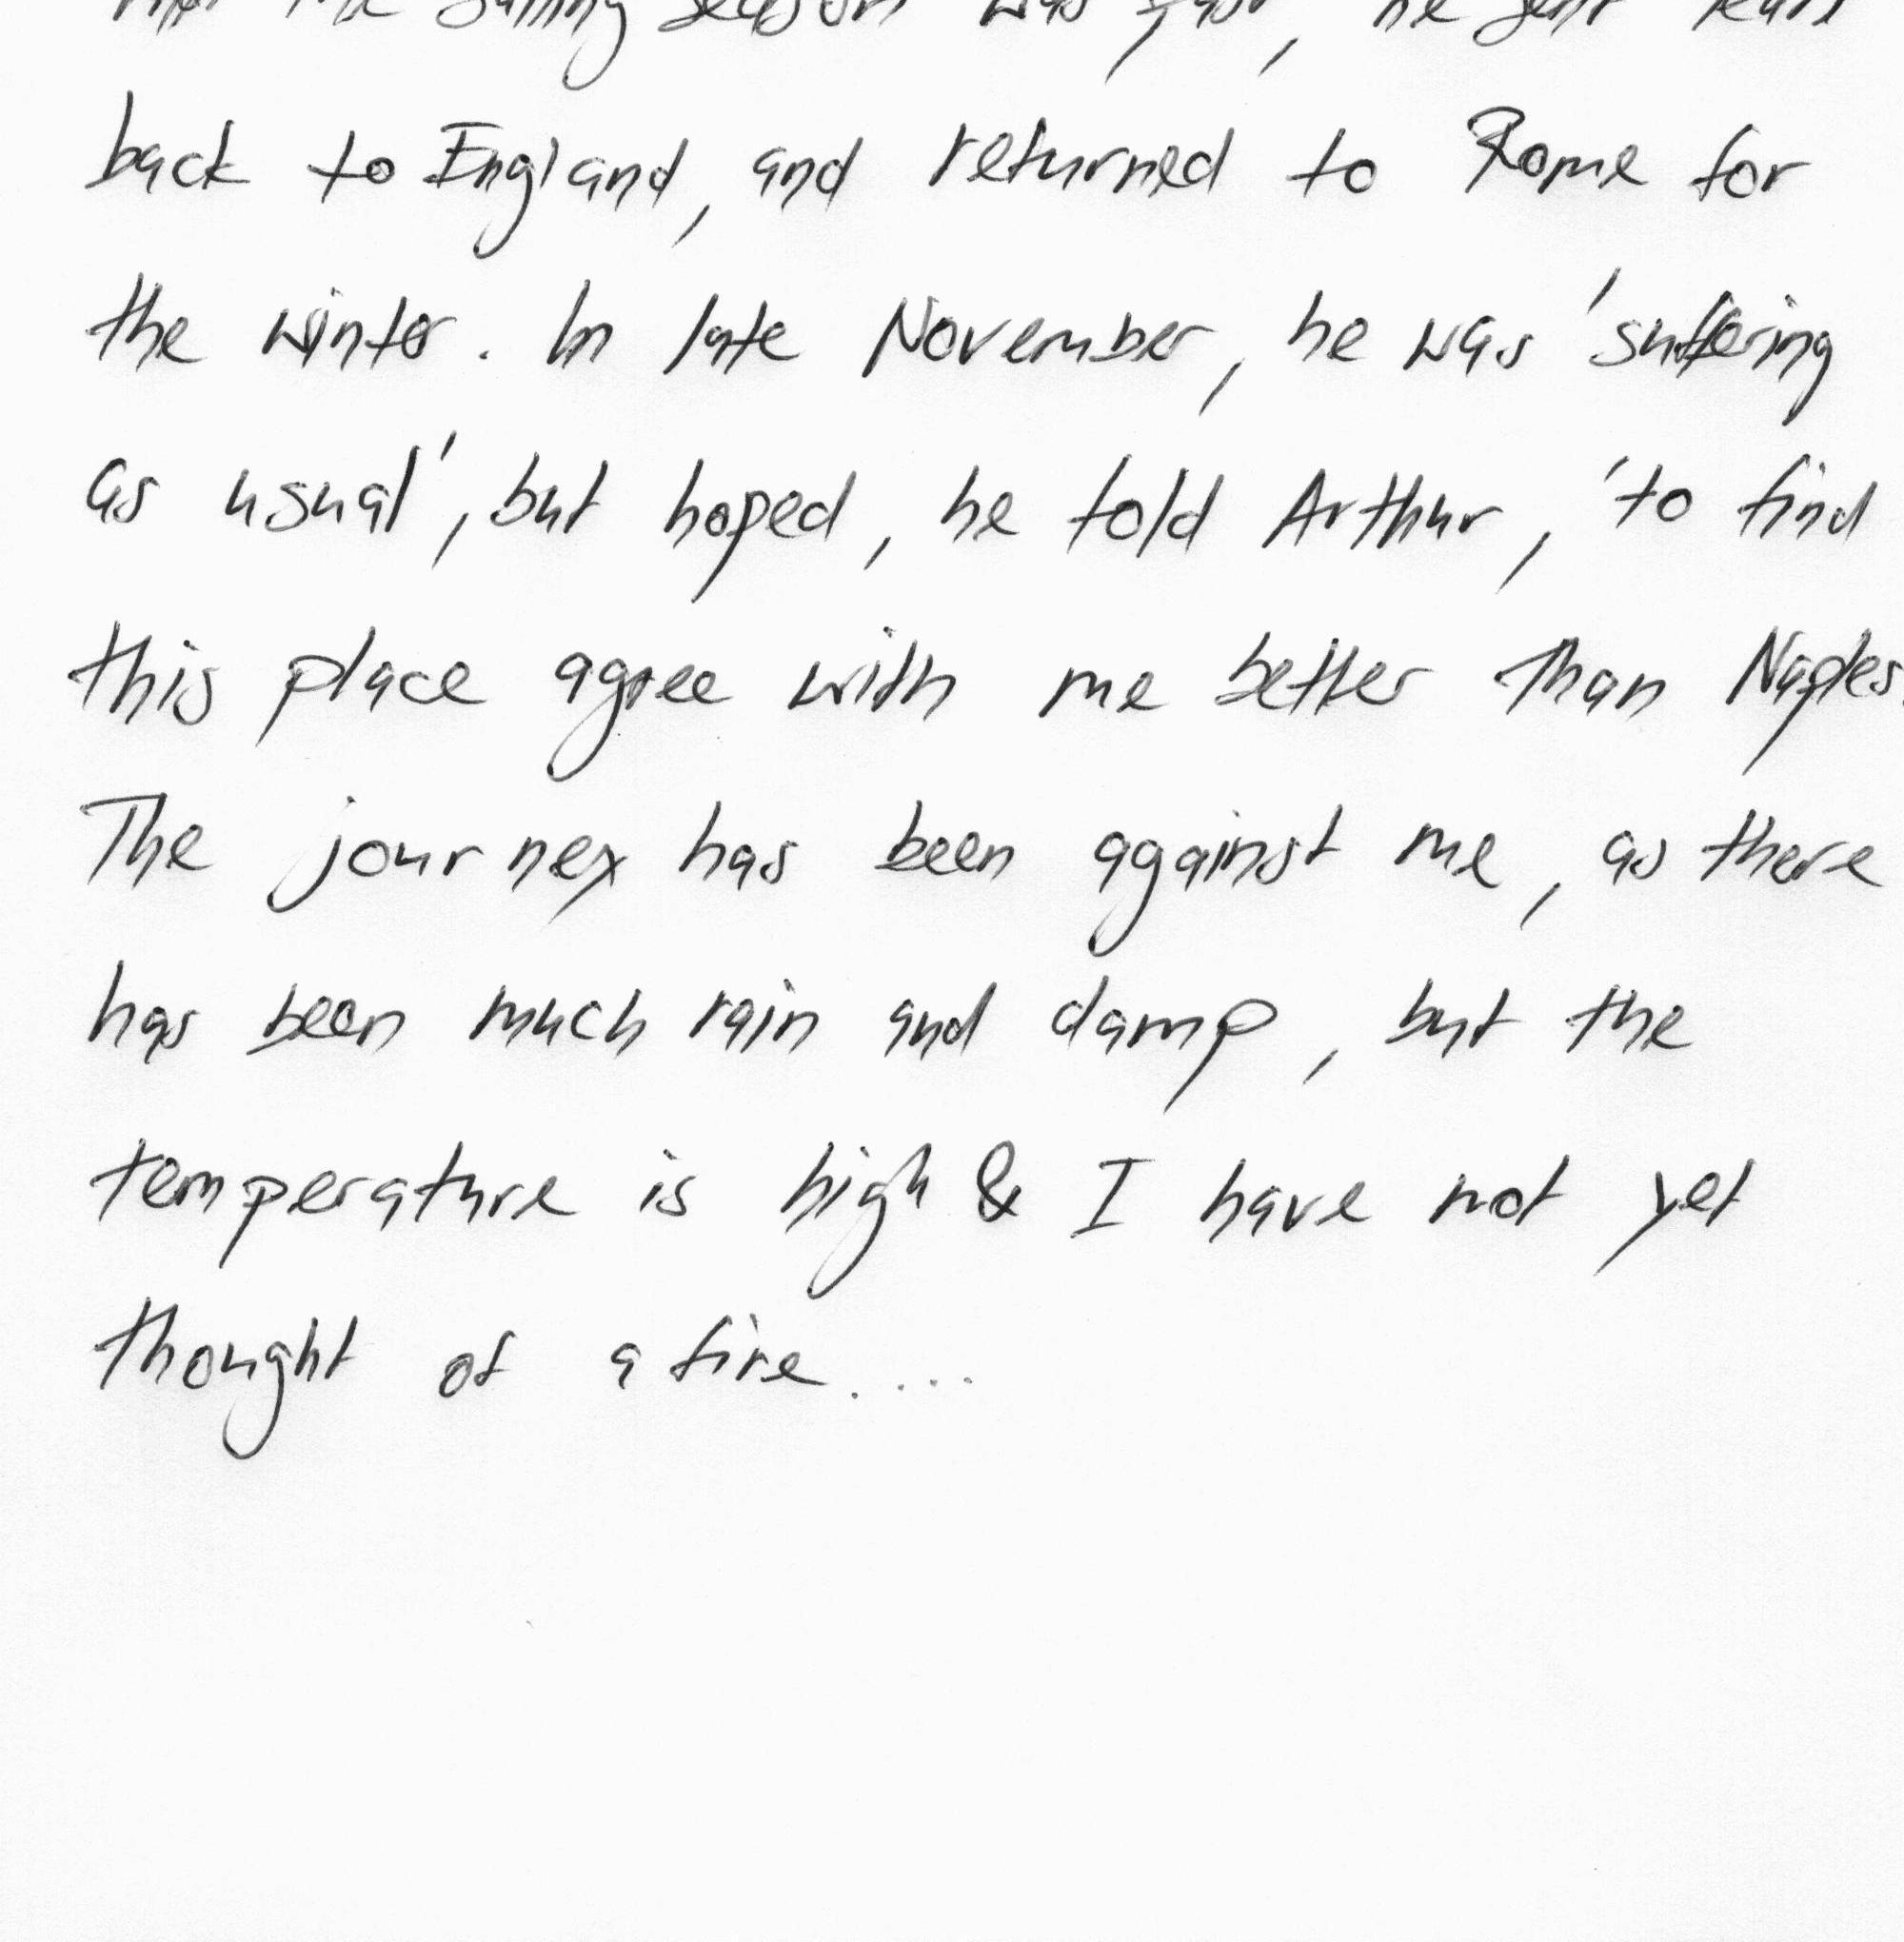 the sailing season was past, he sent
back to England, and returned to Rome for
the winter. In late November, he was 'suffering
as usual', but hoped, he told Arthur, 'to find
this place agree with me better than Naples.
The journey has been against me, as there
has been much rain and damp, but the
temperature is high & I have not yet
thought of a fire....